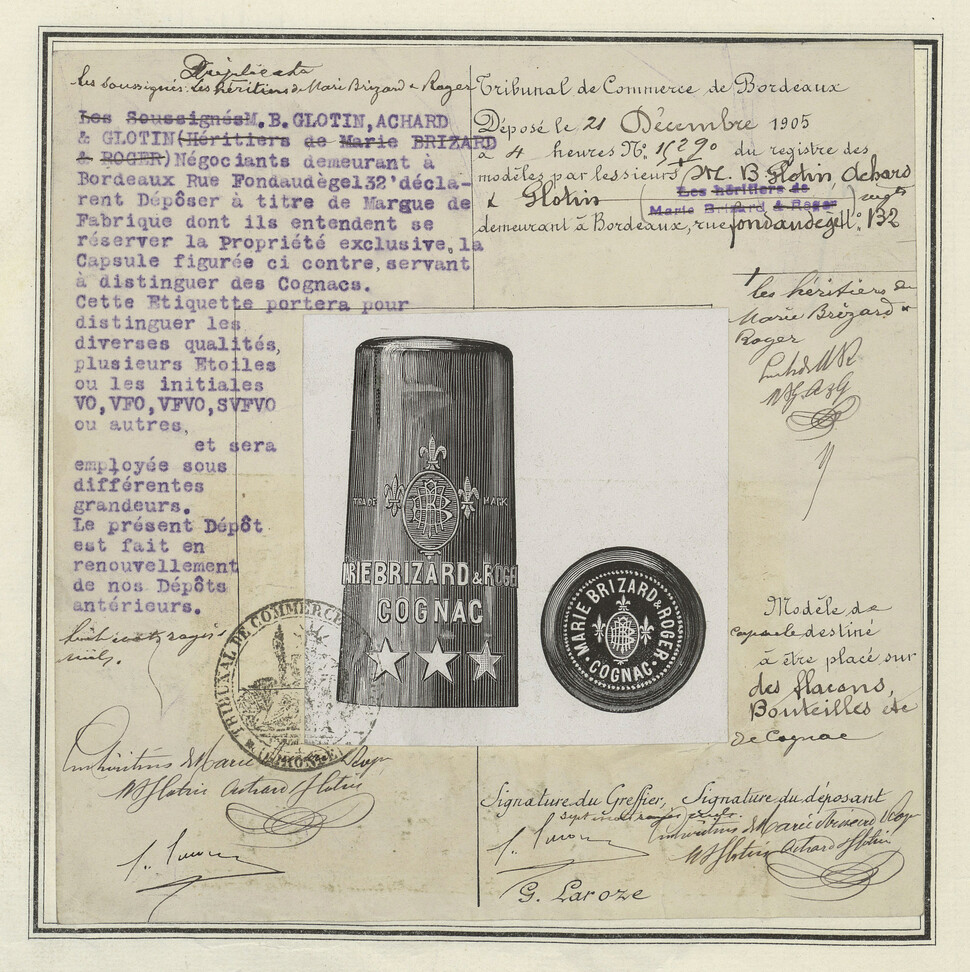 Triplicata
les soussignés: les héritiers de Marie Brizard & Roger
Les Soussignés M.B.GLOTIN,ACHARD
& GLOTIN(Héritiers de Marie BRIZARD
& ROGER)Négociants demeurant à
Bordeaux Rue Fondaudège132'décla-
rent Déposer à titre de Margue de
Fabrique dont ils entendent se
réserver la Propriété exclusive, la
Capsule figurée ci contre,servant
à distinguer des Cognacs.
Cette Etiquette portera pour
distinguer les
diverses qualités,
plusieurs Etoiles
ou les initiales
VO,VFO,VFVO,SVFVO
ou autres,
et sera
employée sous
différentes
grandeurs.
Le présent Dépôt
est fait en
renouvellement
de nos Dépôts
antérieurs.
huit mots rayés
nuls.
Tribunal de Commerce de Bordeaux
Déposé le 21 Décembre 1905
à 4 heures No. du registre des
modèles par les sieurs M. B Glotin, Achard
& Glotin (Les héritiers de
Marie Brizard & Roger négts
demeurant à Bordeaux, rue fondaudège No. 132
les héritiers de
Marie Brizard &
Roger
TRADE MARK
MARIE BRIZARD & ROGER
COGNAC
MARIE BRIZARD & ROGER
COGNAC
TRIBUNAL DE COMMERCE
(GIRONDE)
Modèle de
capsule destiné
à être placé sur
des flacons,
Bouteilles etc
de Cognac
Les héritiers de Marie Brizard & Roger
MB Glotin Achard & Glotin
Signature du Greffier, Signature du déposant
sept mots rayés nuls.
Les héritiers de Marie Brizard & Roger
MB Glotin Achard & Glotin
G. Laroze